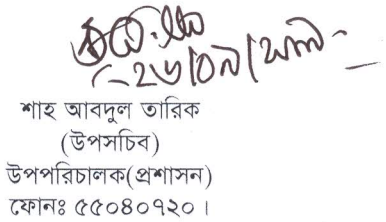 শাহ আবদুল তারিক
(উপসচিব)
উপপরিচালক(প্রশাসন)
ফোনঃ ৫৫০৪০৭২০।